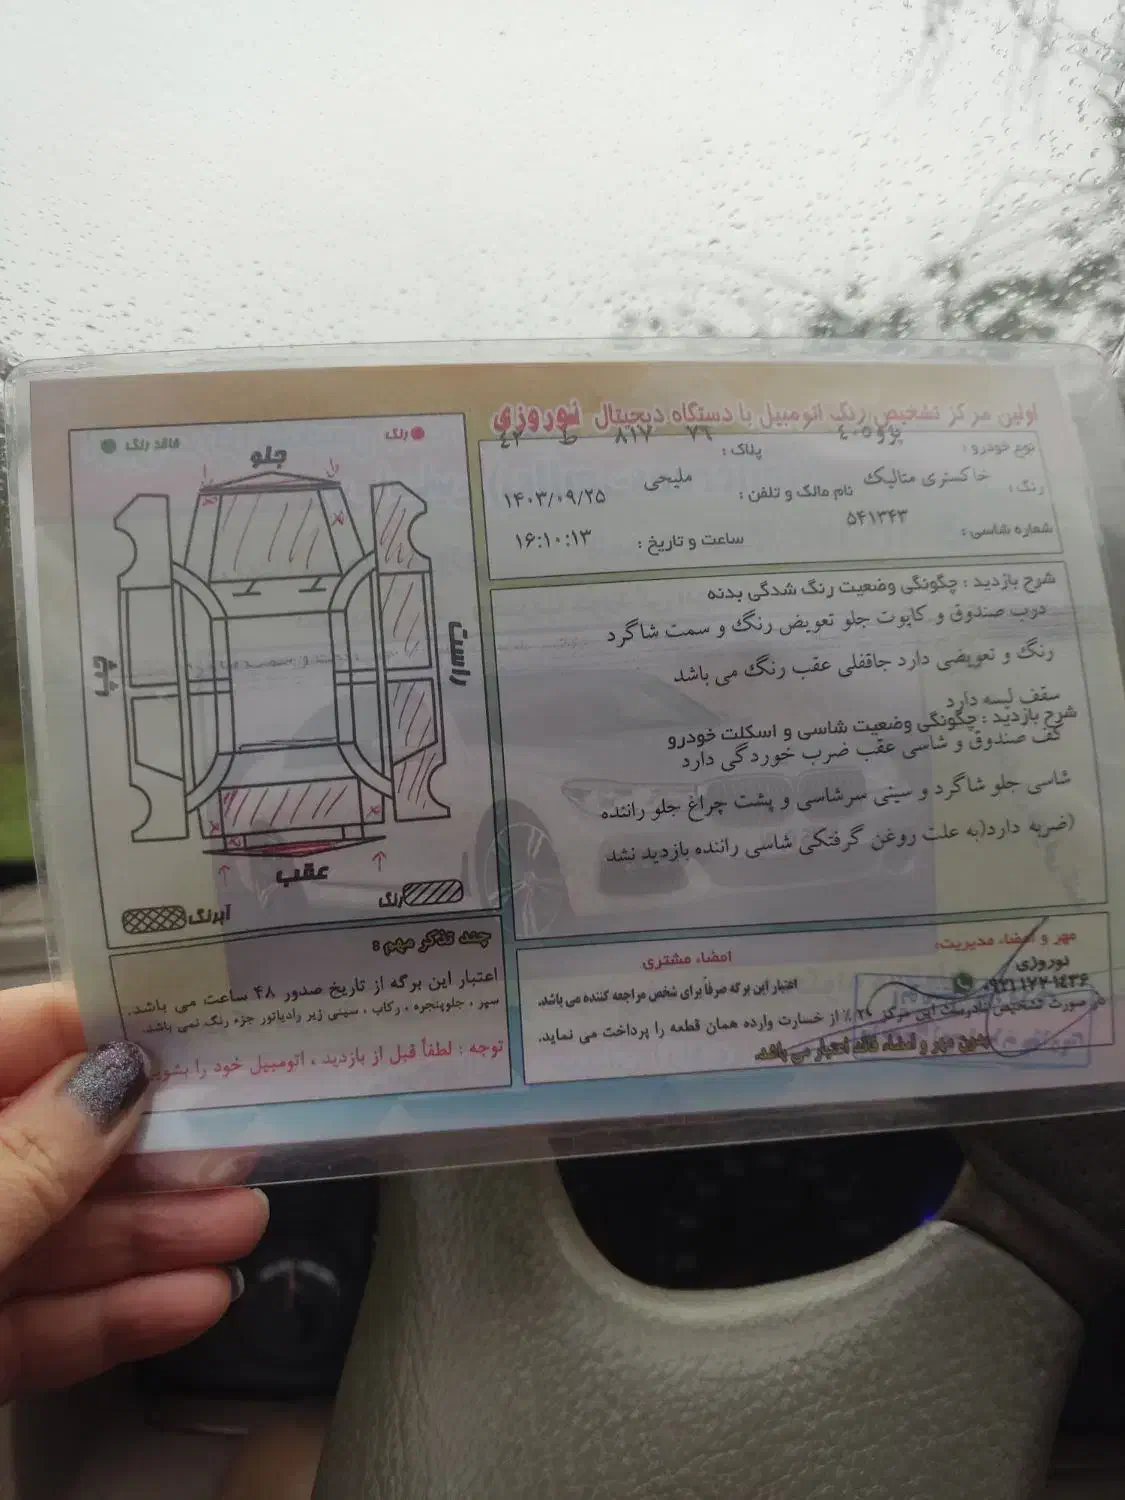 اولین مرکز تشخیص رنگ اتومبیل با دستگاه دیجیتال نوروزی
نوع خودرو : پژو ۴۰۵
پلاک : ۷۶ ۸۱۷ ط ۴۲
رنگ : خاکستری متالیک
نام مالک و تلفن : ملیحی
۱۴۰۳/۰۹/۲۵
شماره شاسی : ۵۴۱۳۴۳
ساعت و تاریخ : ۱۶:۱۰:۱۳
شرح بازدید : چگونگی وضعیت رنگ شدگی بدنه
درب صندوق و کاپوت جلو تعویض رنگ و سمت شاگرد
رنگ و تعویضی دارد جاقفلی عقب رنگ می باشد
سقف لیسه دارد
شرح بازدید : چگونگی وضعیت شاسی و اسکلت خودرو
کف صندوق و شاسی عقب ضرب خوردگی دارد
شاسی جلو شاگرد و سینی سرشاسی و پشت چراغ جلو راننده
ضربه دارد(به علت روغن گرفتکی شاسی راننده بازدید نشد)
مهر و امضاء مدیریت:
نوروزی
امضاء مشتری
اعتبار این برگه صرفاً برای شخص مراجعه کننده می باشد.
در صورت تشخیص نادرست این مرکز ۲۰ ٪ از خسارت وارده همان قطعه را پرداخت می نماید.
بدون مهر و امضاء فاقد اعتبار می باشد.
رنگ
فاقد رنگ
جلو
راست
چپ
عقب
رنگ
آبرنگ
چند تذکر مهم :
اعتبار این برگه از تاریخ صدور ۴۸ ساعت می باشد.
سپر ، جلوپنجره ، رکاب ، سینی زیر رادیاتور جزء رنگ نمی باشد.
توجه : لطفاً قبل از بازدید ، اتومبیل خود را